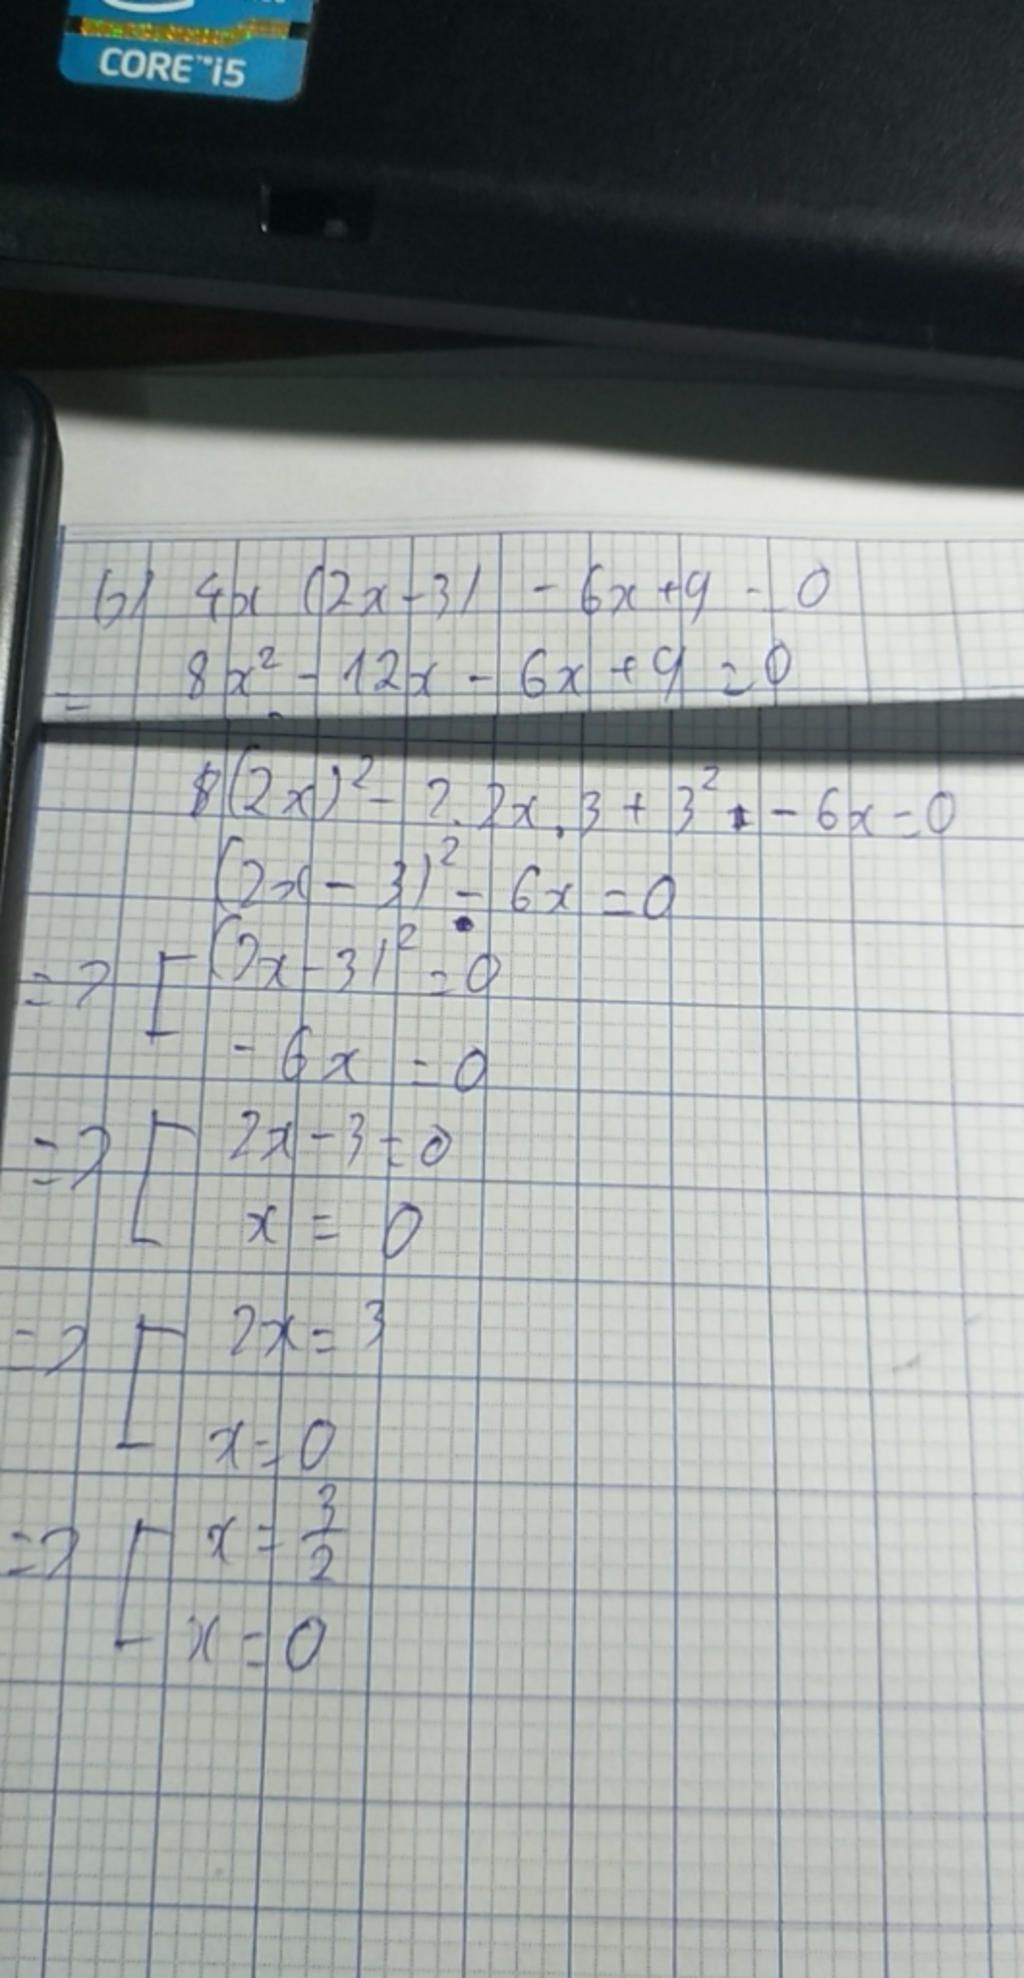 CORE™i5
b) 4x (2x-3) - 6x+9 = 0
= 8x² - 12x - 6x + 9 = 0
(2x)² - 2.2x.3 + 3² - 6x = 0
(2x - 3)² - 6x = 0
=> [ (2x-3)² = 0
- 6x = 0
=> [ 2x - 3 = 0
x = 0
=> [ 2x = 3
x = 0
=> [ x = 3/2
x = 0